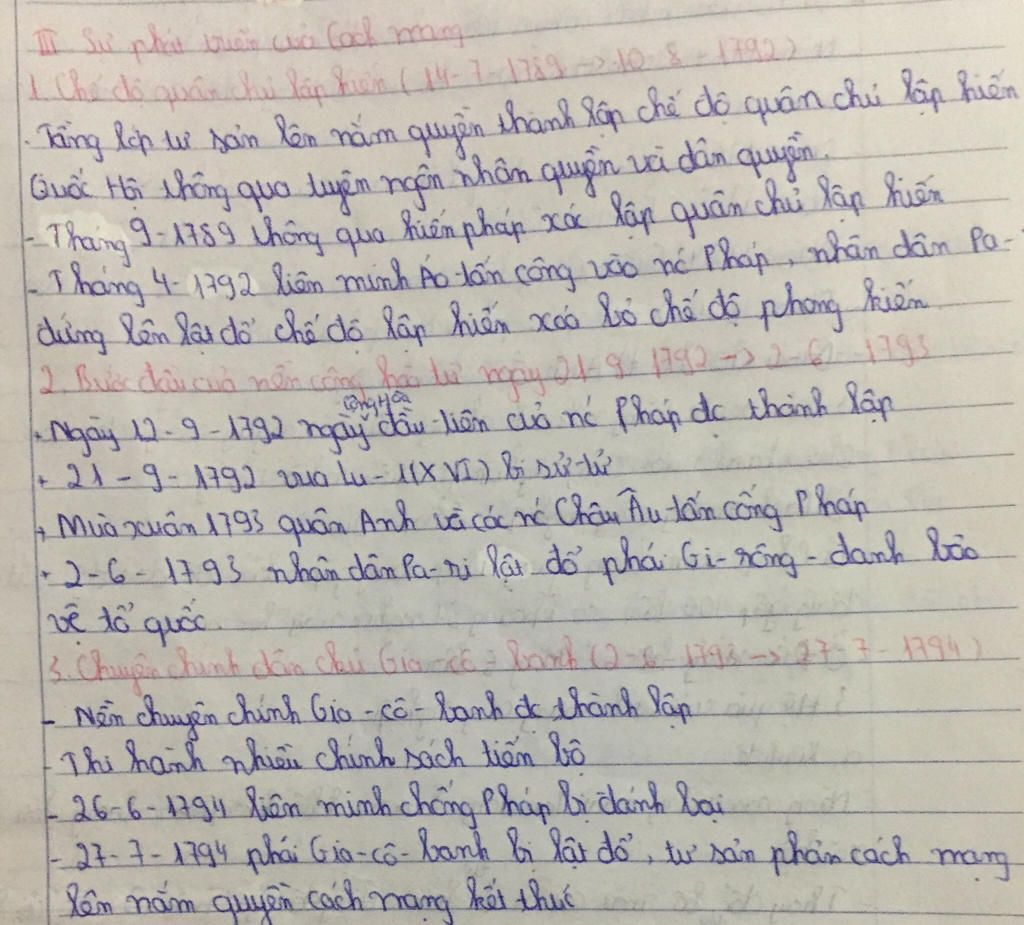 III. Sự phát triển của Cách mạng
1. Chế độ quân chủ lập hiến (14-7-1789 -> 10-8-1792)
. Tầng lớp tư sản lên nắm quyền thành lập chế độ quân chủ lập hiến
Quốc Hội thông qua tuyên ngôn nhân quyền và dân quyền.
- Tháng 9-1789 thông qua hiến pháp xác lập quân chủ lập hiến
- Tháng 4-1792 liên minh Áo tấn công vào nć Pháp, nhân dân Pa-
đứng lên lật đổ chế độ lập hiến xoá bỏ chế độ phong kiến
2. Bước đầu của nền cộng hoà từ ngày 21-9-1792 -> 2-6-1793
cộng hòa
+ Ngày 12-9-1792 ngày đầu tiên của nć Pháp đc thành lập
+ 21-9-1792 vua Lu-i(XVI) bị sử tử
+ Mùa xuân 1793 quân Anh và các nć Châu Âu tấn công Pháp
+ 2-6-1793 nhân dân Pa-ri lật đổ phái Gi-rông-danh bảo
vệ tổ quốc.
3. Chuyên chính dân chủ Gia-cô-banh (2-6-1793 -> 27-7-1794)
- Nền chuyên chính Gia-cô-banh đc thành lập
- Thi hành nhiều chính sách tiến bộ
- 26-6-1794 liên minh chống Pháp bị đánh bại
- 27-7-1794 phái Gia-cô-banh bị lật đổ, tư sản phản cách mạng
lên nắm quyền cách mạng kết thúc